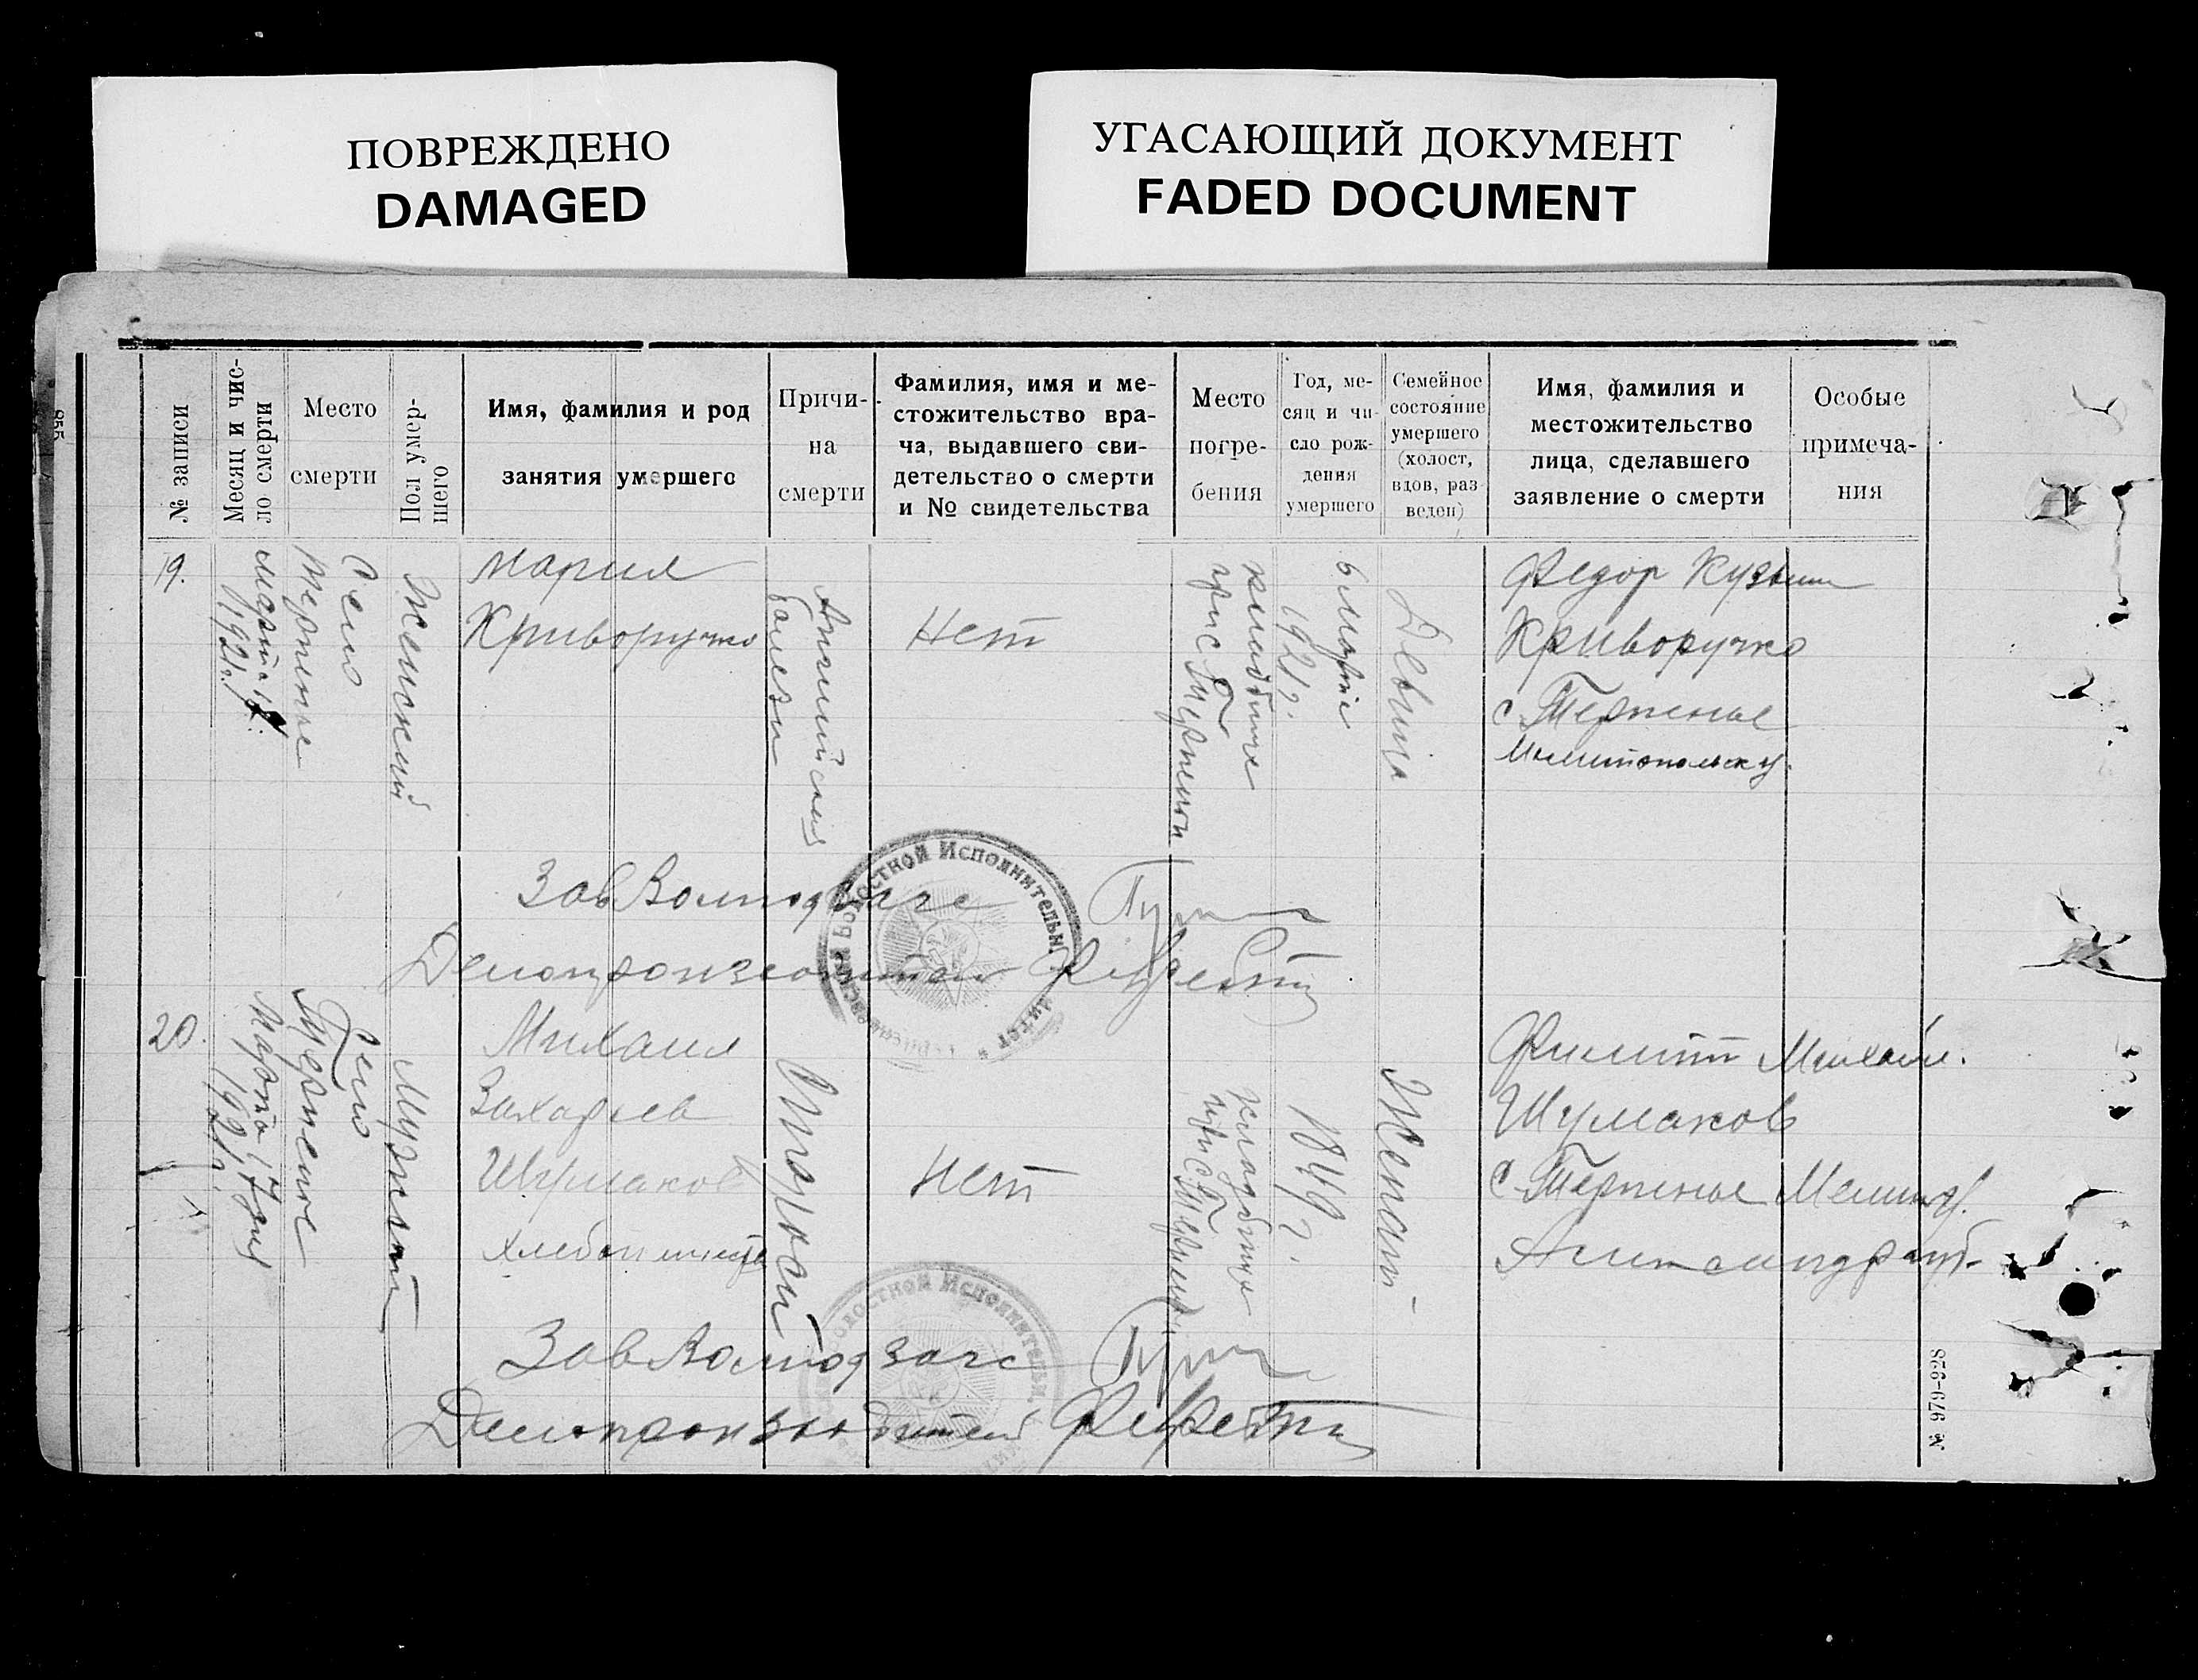 ПОВРЕЖДЕНО
DAMAGED
УГАСАЮЩИЙ ДОКУМЕНТ
FADED DOCUMENT
№ записи
Месяц и чис-
ло смерти
Место
смерти
Пол умер-
шего
Имя, фамилия и род
занятия умершего
Причи-
на
смерти
Фамилия, имя и ме-
стожительство вра-
ча, выдавшего сви-
детельство о смерти
и № свидетельства
Место
погре-
бения
Год, ме-
сяц и чи-
сло рож-
дения
умершего
Семейное
состояние
умершего
(холост,
вдов, раз-
веден)
Имя, фамилия и
местожительство
лица, сделавшего
заявление о смерти
Особые
примеча-
ния
19.
Марта
1921г.
Село
Терпение
Женский
Мария
Криворучко
Английская
болезн
Нет
кладбище
при с. Терпении
6 марта
1921г.
Девица
Федор Кузьм
Криворучко
с. Терпение
Мелитопольск у.
ЗавВолподзагс
Делопроизводитель
Волостной Исполнительн
20.
Марта 17 дня
1921г.
Село
Терпение
Мужской
Михаил
Захарьев
Шумаков
хлебопашец
Нет
кладбище
при с. Терпении
1849г.
Женат
Филипп Михайл.
Шумаков
с. Терпение Мелит у.
Александр губ.
ЗавВолподзагс
Делопроизводитель
олостной Исполнительн.
855
№ 979-928